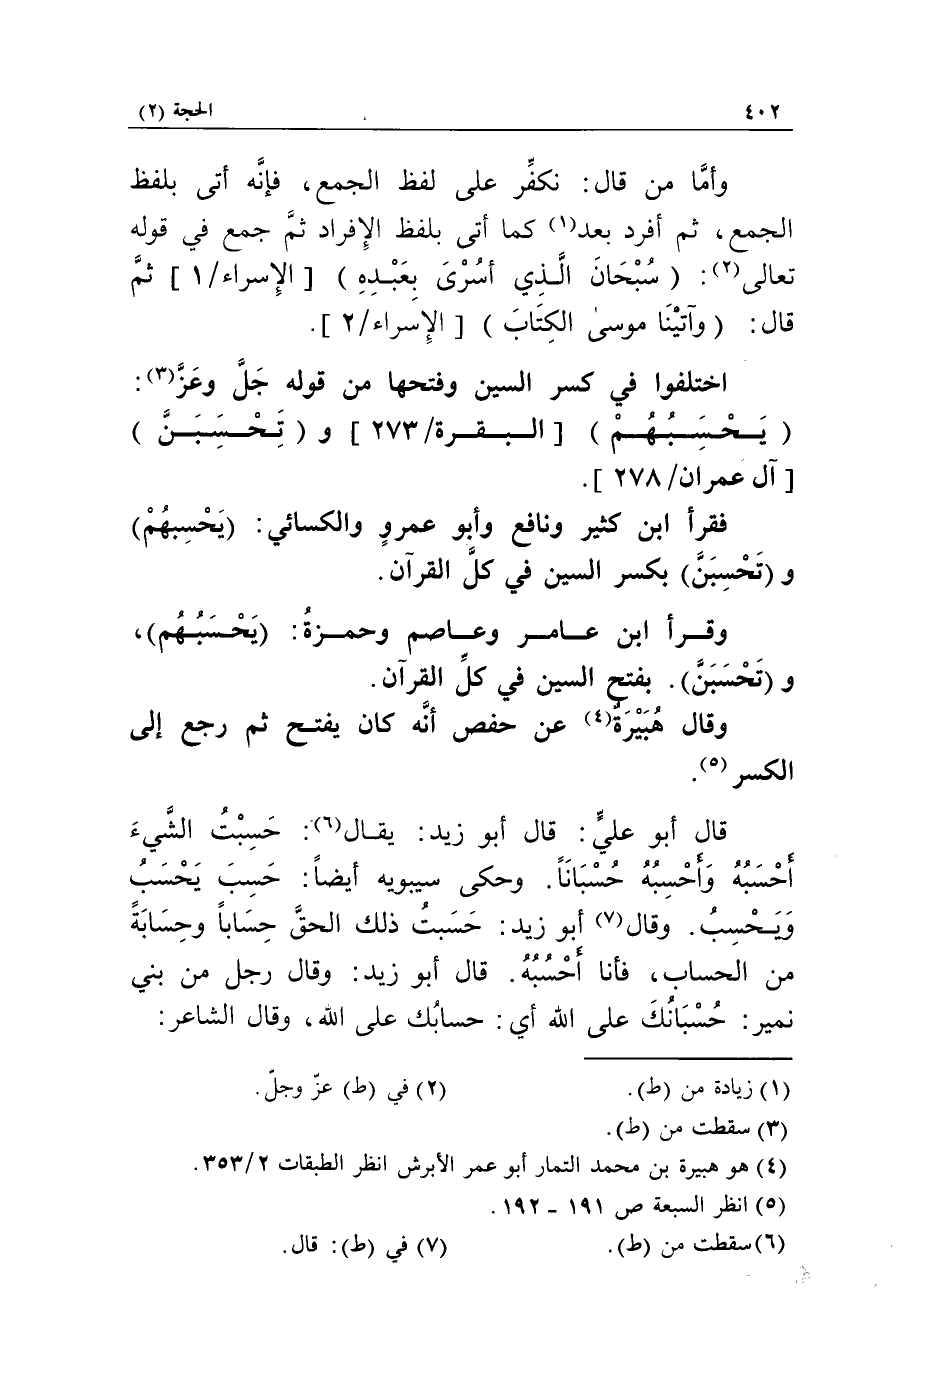 ٤٠٢ الحجة (٢)
وأمَّا من قال: نكفِّر على لفظ الجمع، فإنَّه أتى بلفظ
الجمع، ثم أفرد بعد(١) كما أتى بلفظ الإفراد ثمَّ جمع في قوله
تعالى(٢): ( سُبْحَانَ الَّذِي أسْرَىٰ بِعَبْدِهِ ) [ الإسراء/١ ] ثمَّ
قال: ( وآتيْنَا موسىٰ الكِتَابَ ) [ الإسراء/٢ ].
اختلفوا في كسر السين وفتحها من قوله جَلَّ وعَزَّ(٣):
( يَحْسِبُهُمْ ) [ البقرة/ ٢٧٣ ] و ( تَحْسَبَنَّ )
[ آل عمران/ ٢٧٨ ].
فقرأ ابن كثير ونافع وأبو عمروٍ والكسائي: (يَحْسِبهُمْ)
و (تَحْسِبَنَّ) بكسر السين في كلَّ القرآن.
وقرأ ابن عامر وعاصم وحمزةُ: (يَحْسَبُهُم)،
و (تَحْسَبَنَّ). بفتح السين في كلِّ القرآن.
وقال هُبَيْرَةُ(٤) عن حفص أنَّه كان يفتح ثم رجع إلى
الكسر(٥).
قال أبو عليٍّ: قال أبو زيد: يقال(٦): حَسِبْتُ الشَّيءَ
أَحْسَبُهُ وَأَحْسِبُهُ حُسْبَانَاً. وحكى سيبويه أيضاً: حَسِبَ يَحْسَبُ
وَيَحْسِبُ. وقال(٧) أبو زيد: حَسَبتُ ذلك الحقَّ حِسَاباً وحِسَابَةً
من الحساب، فأنا أَحْسُبُهُ. قال أبو زيد: وقال رجل من بني
نمير: حُسْبَانُكَ على الله أي: حسابُك على الله، وقال الشاعر:
(١) زيادة من (ط). (٢) في (ط) عزّ وجلّ.
(٣) سقطت من (ط).
(٤) هو هبيرة بن محمد التمار أبو عمر الأبرش انظر الطبقات ٣٥٣/٢.
(٥) انظر السبعة ص ١٩١ - ١٩٢.
(٦) سقطت من (ط). (٧) في (ط): قال.